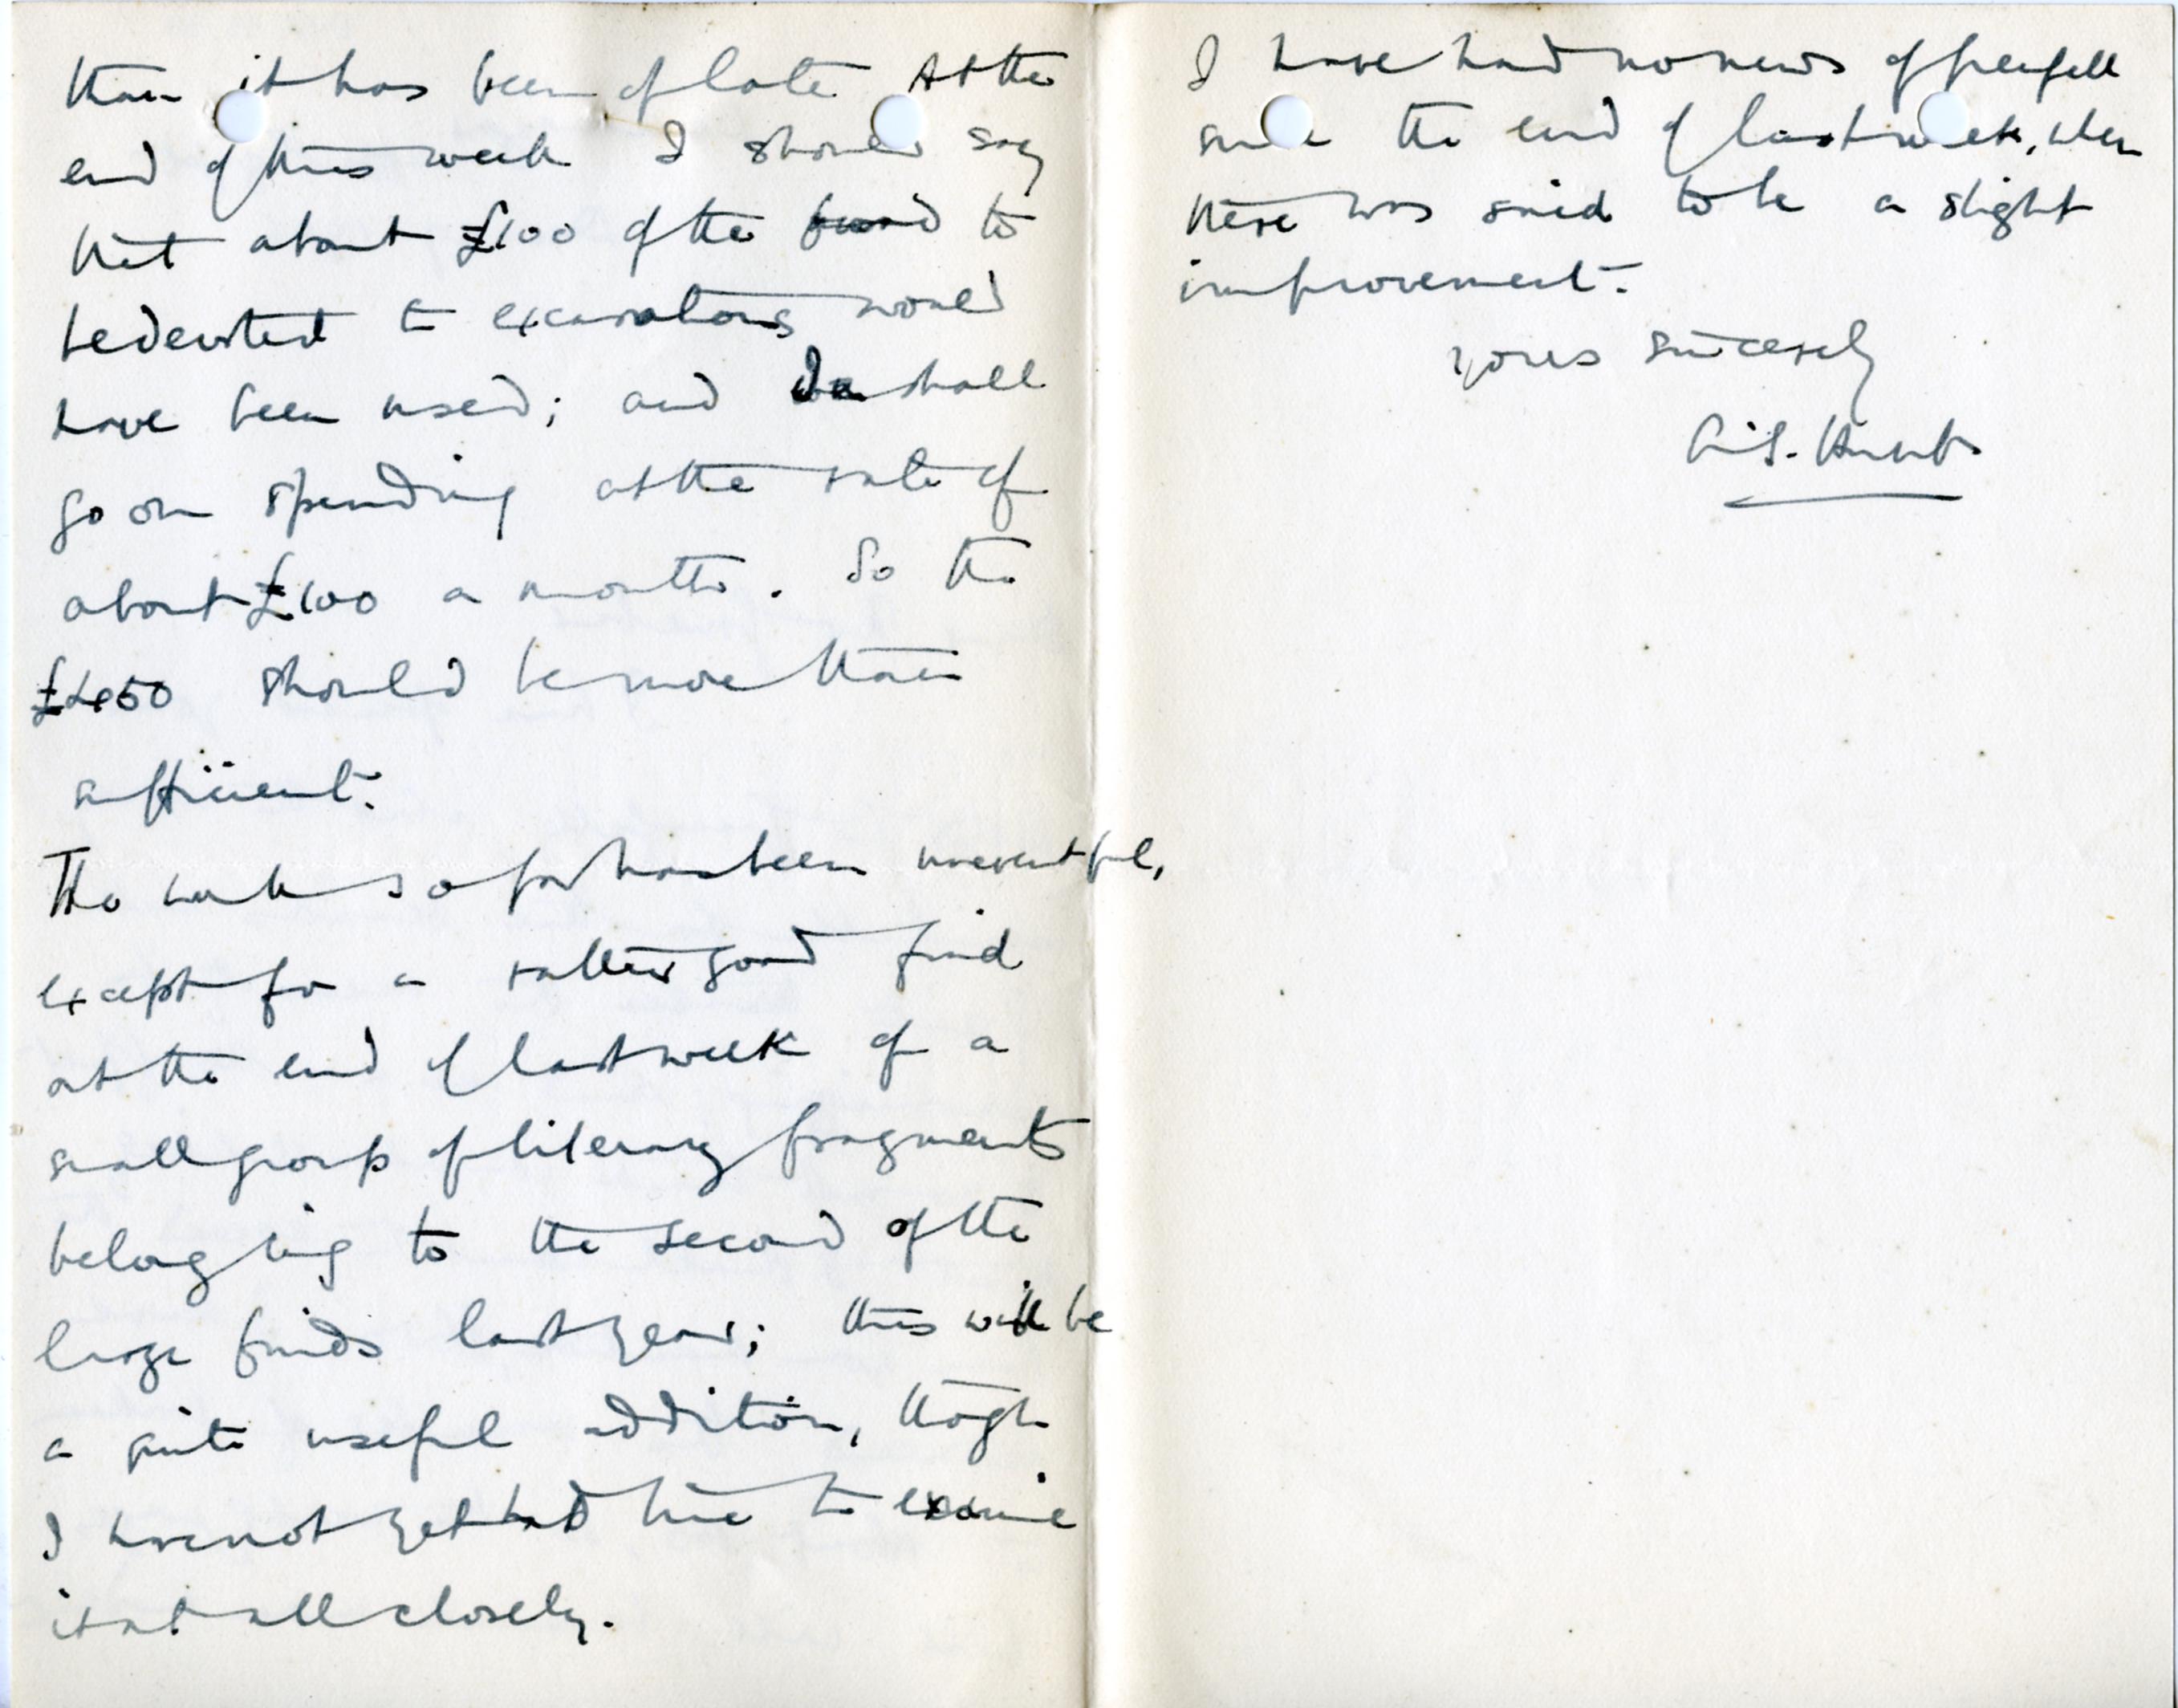 than it has been of late At the
end of this week I should say
that about £100 of the fund to
be devoted to excavations would
have been used; and I shall
go on spending at the rate of
about £100 a month. So the
£450 should be more than
sufficient.
The work so far has been uneventful,
except for a rather good find
at the end of last week of a
small group of literary fragments
belonging to the second of the
large finds last year; this will be
a quite useful addition, thogh
I have not yet had time to examine
it at all closely.
I have had no news of Grenfell
since the end of last week, when
there was said to be a slight
improvement.
Yours sincerely
A.S. Hunt